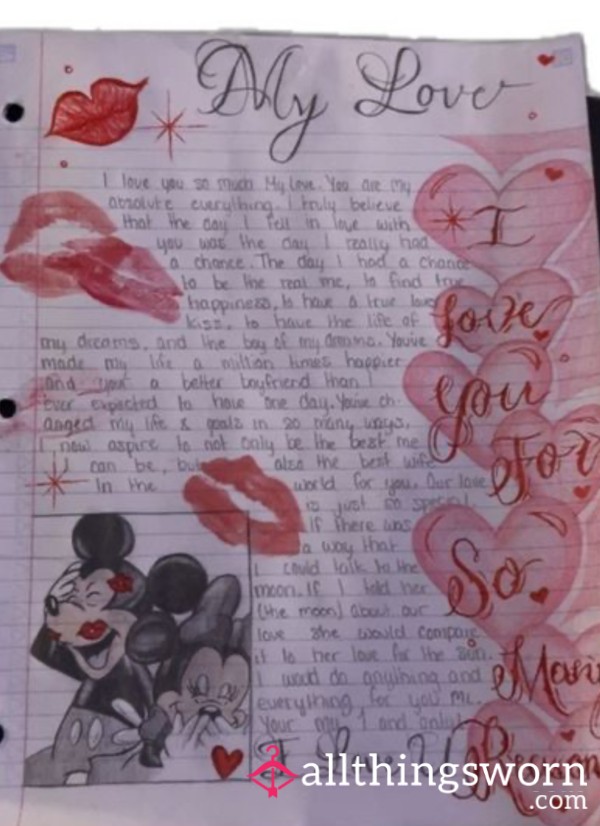 My Love
I love you so much My Love. You are my
absolute everything. I truly believe
that the day I fell in love with
you was the day I really had
a chance. The day I had a chance
to be the real me, to find true
happiness, to have a true love
kiss, to have the life of
my dreams, and the boy of my dreams. You've
made my life a million times happier
and your a better boyfriend than I
ever expected to have one day. You've ch-
anged my life & goals in so many ways.
I now aspire to not only be the best me
I can be, but also the best wife
In the world for you. Our love
is just so special
If there was
a way that
I could talk to the
moon. If I told her
(the moon) about our
love she would compare
it to her love for the sun.
I would do anything and
everything for you ML.
Your my 1 and only!
I
love
you
For
So
Many
allthingsworn
.com